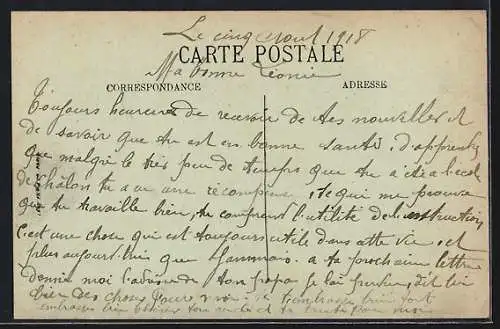 Le cinq aout 1918
CARTE POSTALE
Ma bonne Léonie
CORRESPONDANCE
ADRESSE
Toujours heureux de recevoir de tes nouvelles et
de savoir que tu est en bonne santé, d'apprendre
que malgré le très peu de temps que tu a été a l'école
de Châlon tu a eu une récompense, ce qui me prouve
que tu travaille bien, tu comprend l'utilité de l'instruction
c'est une chose qui est toujours utile dans cette vie et
plus aujourd'hui que jammais. a ta prochaine lettre
donne moi l'adresse de ton papa je l'ai perdue, dit lui
bien des chose pour moi. je t'embrasse bien fort
embrasse bien ton et ta pour moi